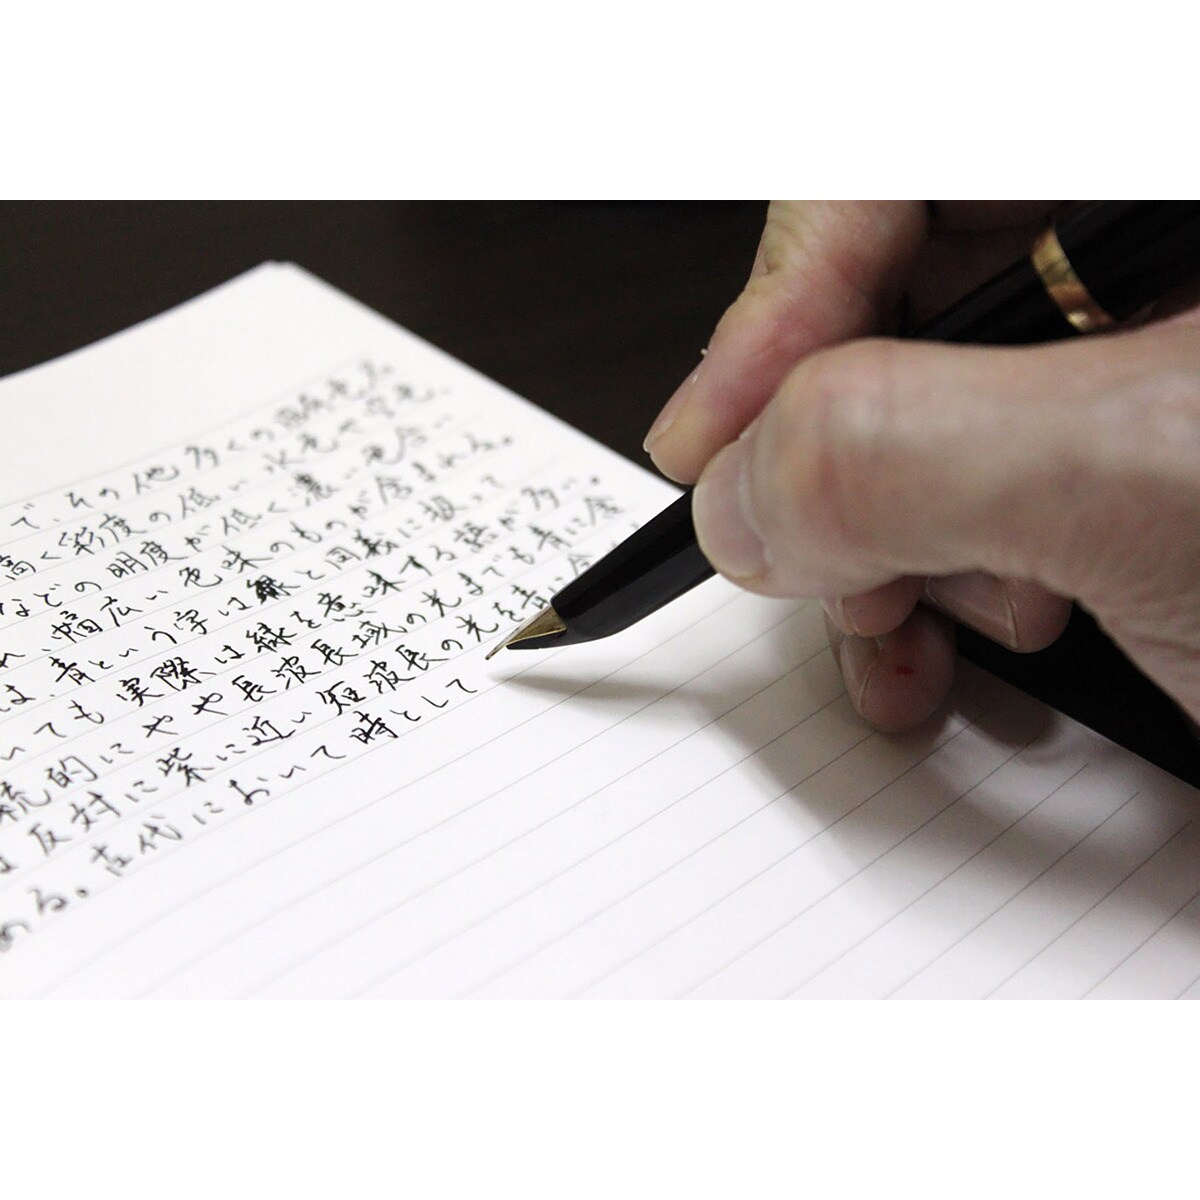 で、その他多くの
高く彩度の低い水色や空色、
などの明度が低く濃い色合い
れ、幅広い色味のものが含まれる。
は、青という字は緑と同義に扱って
いても実際は緑を意味する語が多い。
統的にやや長波長域の光までも青に含
は反対に紫に近い短波長の光を青い
める。古代において時として